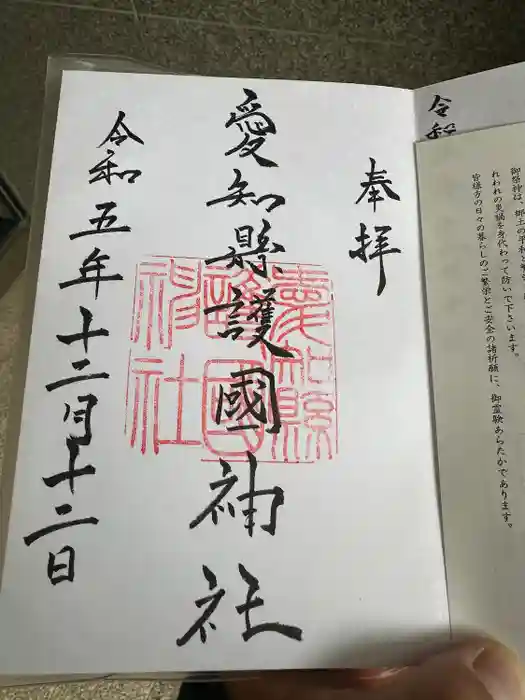 奉拝
愛知縣護國神社
令和五年十二月十二日
愛知縣
護國
神社
令和
れわれの災禍を身代わって防いで下さいます。
皆様方の日々の暮らしのご繁栄とご安全の諸祈願に、御霊験あらたかであります。